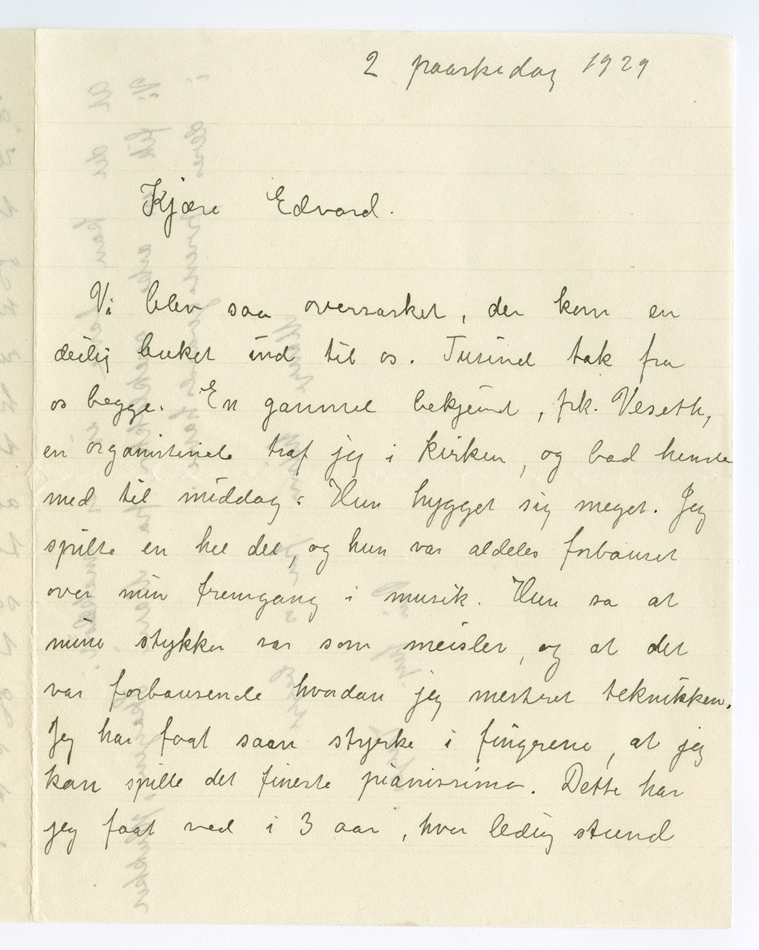 2 paaskedag 1929
Kjære Edvard.
Vi blev saa overrasket, der kom en
deilig buket ind til os. Tusind tak fra
os begge. En gammel bekjend, frk. Veseth,
en organistinde traf jeg i kirken, og bad hende
med til middag. Hun hygget sig meget. Jeg
spilte en hel del, og hun var aldeles forbauset
over min fremgang i musik. Hun sa at
mine stykker var som meisler, og at det
var forbausende hvordan jeg mestret teknikken.
Jeg har faat saan styrke i fingrene, at jeg
kan spille det fineste pianissimo. Dette har
jeg faat ved i 3 aar, hver ledig stund